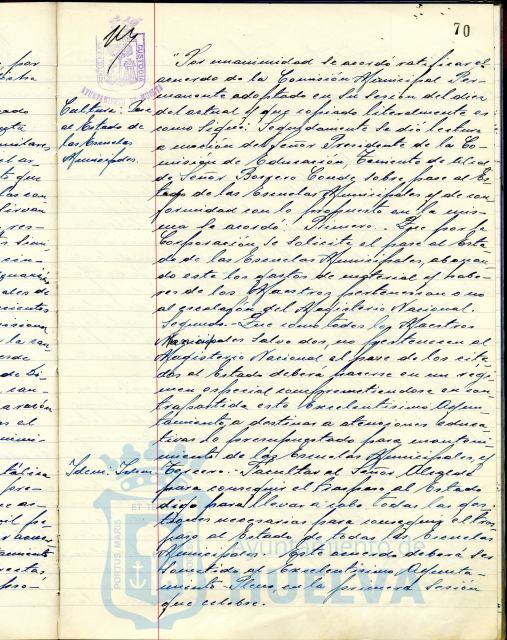 70
Cultura: Pase
al Estado de
las Escuelas
Municipales.
"Por unanimidad se acordó ratificar el
acuerdo de la Comisión Municipal Per-
manente adoptado en su sesión del diez
del actual y que copiado literalmente es
como sigue: Seguidamente se dió lectura
a moción del Señor Presidente de la Co-
misión de Educación, Teniente de Alcal-
de Señor Borrero Conde, sobre pase al Es-
tado de las Escuelas Municipales y de con-
formidad con lo propuesto en la mis-
ma se acordó: Primero.- Que por la
Corporación se solicite el pase al Esta-
do de las Escuelas Municipales, abonan-
do este los gastos de material y habe-
res de los Maestros pertenezcan o no
al escalafón del Magisterio Nacional.
Segundo.- Que como todos los Maestros
Municipales salvo dos, no pertenecen al
Magisterio Nacional el pase de los cita-
dos al Estado deberá hacerse en un regi-
men especial comprometiendose en con-
trapartida este Excelentísimo Ayun-
tamiento, a destinar a atenciones educa-
tivas lo presupuestado para manteni-
miento de las Escuelas Municipales, y
Idem: Idem
Tercero.- Facultar al Señor Alcalde
para conseguir el traspaso al Estado
digo para llevar a cabo todas las ges-
tiones necesarias para conseguir el tras-
paso al Estado de todas las Escuelas
Municipales. Este acuerdo deberá ser
sometido al Excelentísimo Ayunta-
miento Pleno en la primera sesión
que celebre.
PORTUS MARIS
ET TE
Ayuntamiento de
HUELVA